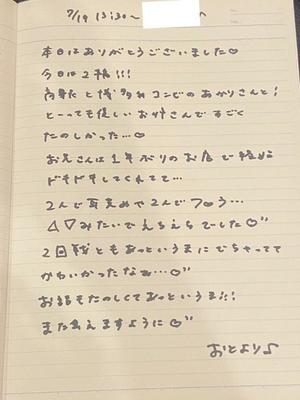 7/19 13:30〜
本日はありがとうございました♡
今日は2輪!!!
身長と博多弁コンビのあかりさんと!
とーっても優しいお姉さんですごく
たのしかった…♡
お兄さんは1年ぶりのお店で終始
ドキドキしてくれてて…
2人で耳責めで2人でフ♡ラ…
△▽みたいでえちえちでした♡"
2回戦ともあっというまにでちゃってて
かわいかったなぁ…♡"
お話もたのしくてあっというま!!
また会えますように♡"
おとより♪